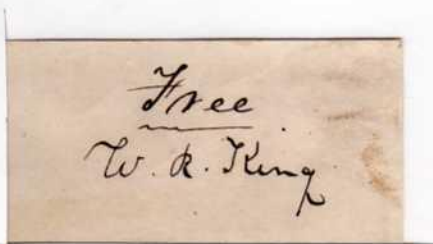 Free
W. R. King